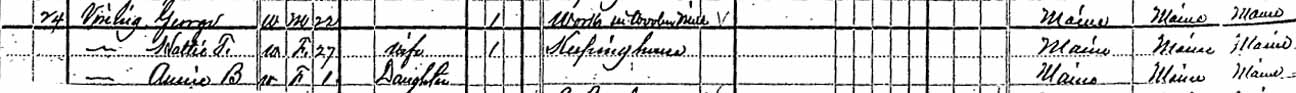 24 George W M 22 1 Works in Woolen Mill √ Maine Maine Maine
— Hattie F. W. F. 27 wife 1 Keeping house Maine Maine Maine
— Annie B W F 1 Daughter Maine Maine Maine